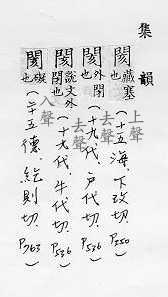 集韻
閡 藏塞也 (十五海、下改切、P350) 上聲
閡 外閉也 (十九代、戶代切、P536) 去聲
閡 說文外閉也 (十九代、牛代切、P536) 去聲
閡 礙也 (二十五德、紇則切、P763) 入聲